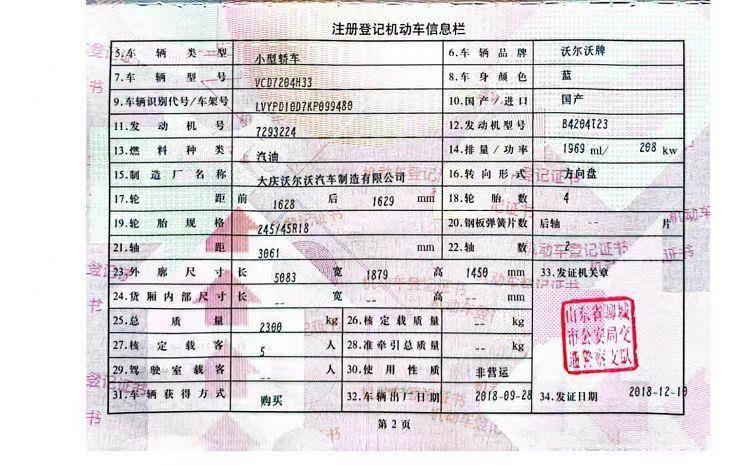 注册登记机动车信息栏
5.车辆类型 小型轿车 6.车辆品牌 沃尔沃牌
7.车辆型号 VCD7204H33 8.车身颜色 蓝
9.车辆识别代号/车架号 LVYPD10D7KP099480 10.国产/进口 国产
11.发动机号 7293224 12.发动机型号 B4204T23
13.燃料种类 汽油 14.排量/功率 1969 ml/ 208 kw
15.制造厂名称 大庆沃尔沃汽车制造有限公司 16.转向形式 方向盘
17.轮距 前 1628 后 1629 mm 18.轮胎数 4
19.轮胎规格 245/45R18 20.钢板弹簧片数 后轴 -- 片
21.轴距 3061 mm 22.轴数 2
23.外廓尺寸 长 5083 宽 1879 高 1450 mm 33.发证机关章
24.货厢内部尺寸 长 -- 宽 -- 高 -- mm
25.总质量 2300 kg 26.核定载质量 -- kg
27.核定载客 5 人 28.准牵引总质量 -- kg
29.驾驶室载客 -- 人 30.使用性质 非营运
31.车辆获得方式 购买 32.车辆出厂日期 2018-09-28 34.发证日期 2018-12-10
山东省聊城
市公安局交
通警察支队
第2页